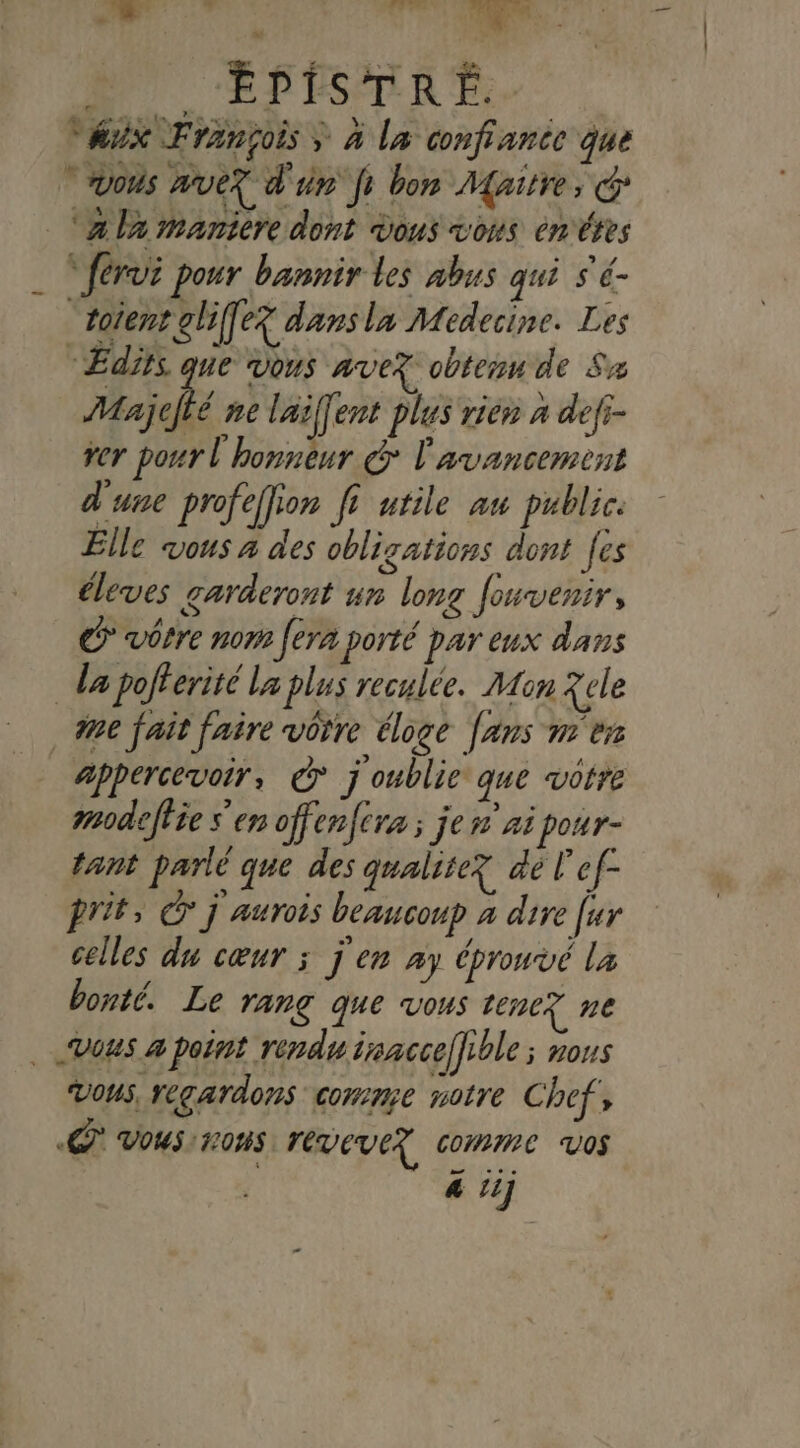 ÉPÎSTRE.
aux François, à la confiance que
vous avez d'un ſi bon Maitre, &
à la maniere dont vous vous en êtes
ſervi pour bannir les abus qui s'é-
toient gliſſez dans la Medecine. Les
Edits que vous avez obtenu de Sa
Majeſté ne laiſſent plus rien à deſi-
rer pour l'honneur & l'avancement
d'une profeſſion ſi utile au public.
Elle vous a des obligations dont ſes
éleves garderont un long ſouvenir,
& vôtre nom ſera porté par eux dans
la poſterité la plus reculée. Mon zele
me fait faire vôtre éloge ſans m'en
appercevoir, & j'oublie que vôtre
modeſtie s'en offenſera; je n'ai pour-
tant parlé que des qualitez de l'eſ-
prit, & j'aurois beaucoup a dire ſur
celles du cœur; j'en ay éprouvé la
bonté. Le rang que vous tenez ne
vous a point rendu inacceſſible; nous
vous regardons comme notre Chef,
& vous nous revevez comme vos
ã iij